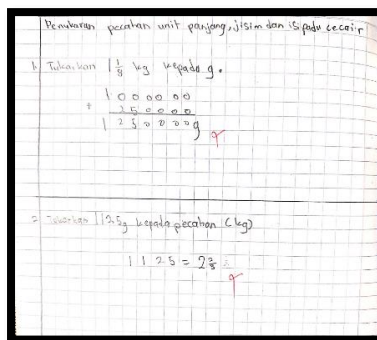 Penukaran pecahan unit panjang, jisim dan isipadu cecair
1. Tukarkan 1 1/8 kg kepada g.
1000000
+ 250000
1250000g
= Tukarkan 1125g kepada pecahan (kg)
1125 = 2 2/8